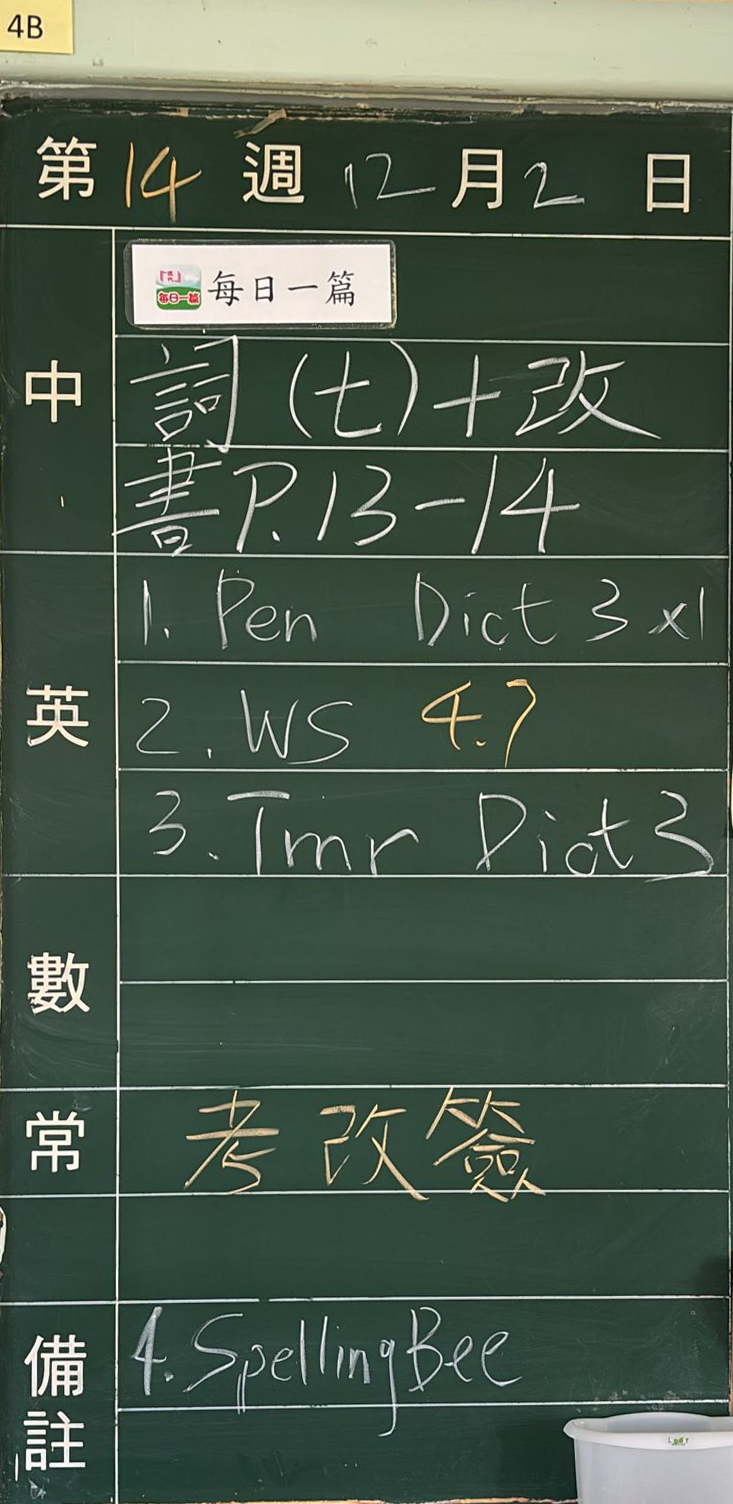 4B
第14週12月2日
中
每日一篇 每日一篇
詞(七)+改
書P.13-14
英
1. Pen Dict 3 x1
2. WS 4.7
3. Tmr Dict 3
數
常
考改簽
備註
4. Spelling Bee